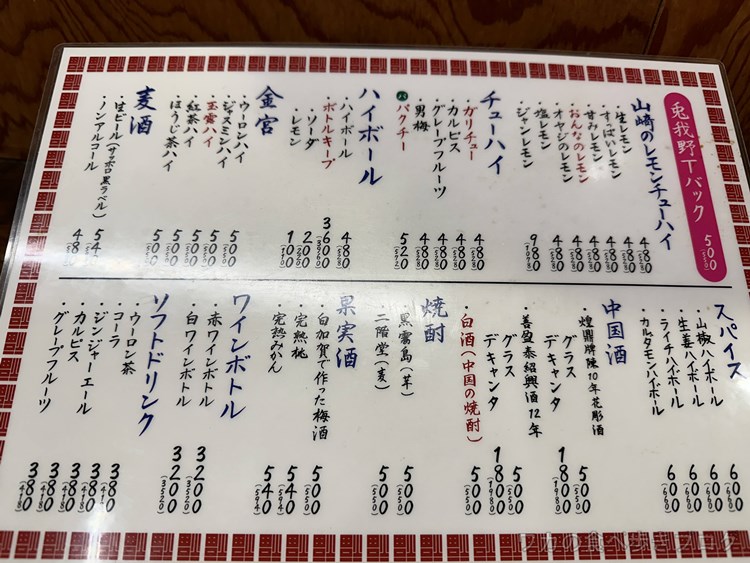 兎我野Tバック 500(550)
山崎のレモンチューハイ
・生レモン 480(528)
・すっぱいレモン 480(528)
・甘みレモン 480(528)
・おんなのレモン 480(528)
・オヤジのレモン 480(528)
・塩レモン 480(528)
・ジャンレモン 980(1078)
チューハイ
・ガリチュー 480(528)
・カルピス 480(528)
・グレープフルーツ 480(528)
・男梅 480(528)
パ
・パクチー 520(572)
ハイボール
・ハイボール 480(528)
・ボトルキープ 3600(3960)
・ソーダ 200(220)
・レモン 100(110)
金宮
・ウーロンハイ 500(550)
・ジャスミンハイ 500(550)
・玉露ハイ 500(550)
・紅茶ハイ 500(550)
・ほうじ茶ハイ 500(550)
麦酒
・生ビール(サッポロ黒ラベル)
・ノンアルコール 480(528)
スパイス
・山椒ハイボール 600(660)
・生姜ハイボール 600(660)
・ライチハイボール 600(660)
・カルダモンハイボール 600(660)
中国酒
・煌鼎牌陳10年花彫酒
グラス 500(550)
デキャンタ 1800(1980)
・善盈泰紹興酒12年
グラス 500(550)
デキャンタ 1800(1980)
・白酒(中国の焼酎) 500(550)
焼酎
・黒霧島(芋) 500(550)
・二階堂(麦) 500(550)
果実酒
・白加賀で作った梅酒 500(550)
・完熟桃 540(594)
・完熟みかん 540(594)
ワインボトル
・赤ワインボトル 3200(3520)
・白ワインボトル 3200(3520)
ソフトドリンク
・ウーロン茶 380(418)
・コーラ 380(418)
・ジンジャーエール 380(418)
・カルピス 380(418)
・グレープフルーツ 380(418)
ワカの食べ歩きブログ